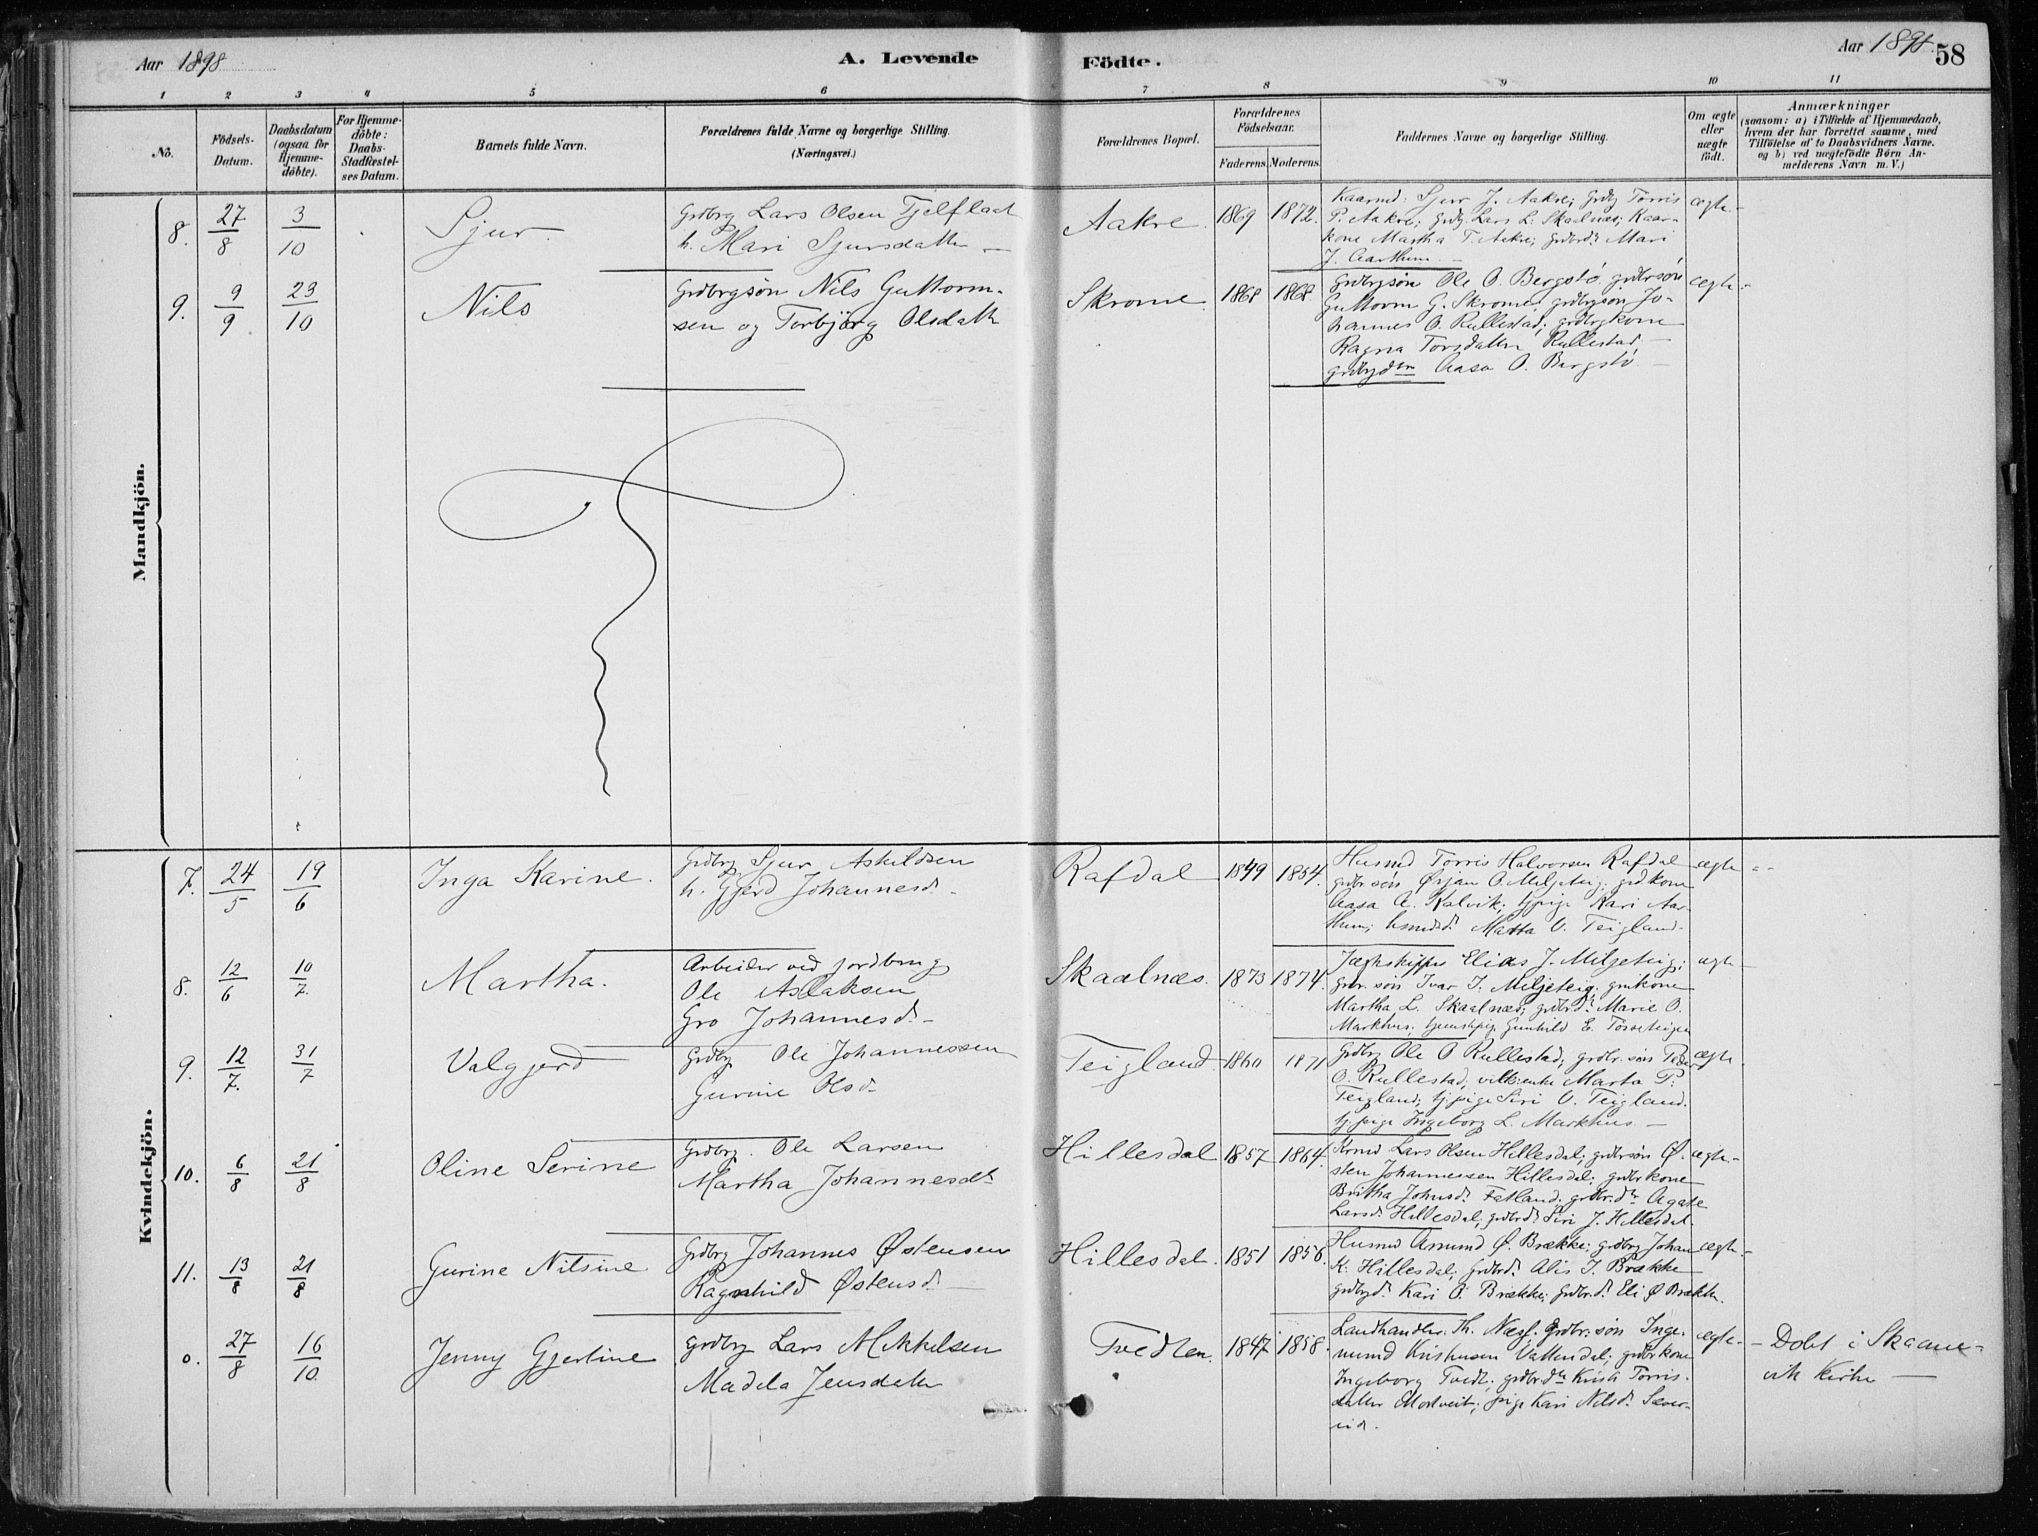 Aar 1898
A. Levende
Födte.
Aar 1898.
58
1 2 3 4 5 6 7 8 9 10 11
No.
Födsels-Datum.
Daabsdatum (ogsaa for Hjemme-döbte).
For Hjemme-döbte: Daabs-Stadfæstel-ses Datum.
Barnets fulde Navn.
Forældrenes fulde Navne og borgerlige Stilling.
(Næringsvei.)
Forældrenes Bopæl.
Forældrenes Födselsaar.
Faderens. Moderens.
Faddernes Navne og borgerlige Stilling.
Om ægte eller uægte födt.
Anmærkninger
(saasom: a) i Tilfælde af Hjemmedaab,
hvem der har forrettet samme, med
Tilföielse af to Daabsvidners Navne.
og b) ved uægtefödte Börn An-
melderens Navn m. V.)
Mandkjön.
8. 27/8 3/10 Sjur. Grdbrg Lars Olsen Tjelflaat
h. Mari Sjursdatter
Aakre. 1869 1872. Kaarmd: Sjur J. Aakre; Grdbg Torris
P. Aakre; Grdbg. Lars L. Skaalnæs; Kaar-
kone Martha T. Aakre; Grdbrd. Mari
J. Aarthun.
ægte.
9. 9/9 23/10 Nils Grdbrgsön Nils Guttorm-
sen og Torbjörg Olsdatter
Skromme. 1868 1868. Grdbrgsön Ole O. Bergstö grdbrsön
Guttorm G. Skromme; grdbrgsön Jo-
hannes O. Rullestad; grdbrgkone
Ragna Torsdatter Rullestad
grdbrgdtr Aasa O. Bergstö.
ægte
Kvindekjön.
7. 24/5 19/6 Inga Karine. Grdbrg Sjur Askildsen
h. Gjerd Johannesd.
Rafdal 1849 1854. Husmd Torris Halvorsen Rafdal
grdbrsön Örjan O. Miljeteig; grdkone
Aasa A. Kalvik; tjpige Kari Aar-
thun; husmdd. Marta O. Teigland.
ægte
8. 12/6 10/7. Martha. Arbeider ved jordbrug
Ole Aslaksen
Gro Johannesd.
Skaalnæs. 1873 1874. Jægtskipper Elias J. Miljeteig;
grbr.sön Ivar I. Miljeteig; gmkone
Martha L. Skaalnæs; grdbrd. Marie O.
Markhus; tjenestpig. Gunhild E.
ægte
9. 12/7. 31/7 Valggjerd Grdbrg Ole Johannessen
Gurine Olsd.
Teigland 1860 1871 Grdbrg Ole O Rullestad; grdbr.sön Peder
O. Rullestad; Marta P.
Teigland; tj.pige Siri O. Teigland.
tj.pige Ingeborg L. Markhus.
ægte.
10. 6/8 21/8 Oline Serine Grdbrg. Ole Larsen
Martha Johannesdt.
Hillesdal 1857 1864. Krmd Lars Olsen Hillesdal; grdbrsön Ø.
sten Johannessen Hillesdal; grdbrkone
Britha Johnsd. Fatland; grdbr.dtr Agate
Larsd. Hillesdal; grdbrd. Siri J. Hillesdal.
ægte
11. 13/8 21/8 Gurine Nilsine Grdbrg Johannes Østensen
Ragnhild Østensd.
Hillesdal. 1851 1856. Husmd Amund Ø. Brække; grdbrg Johan
K. Hillesdal; grdbrd. Alis J. Brække
grdbrgd. Kari O. Brække; grdbr.d. Eli Ø Brække.
ægte
0. 27/8 16/10. Jenny Gjertine Grdbrg Lars Mikkelsen
Madela Jensdatter
Tvedten. 1847 1858. Landhandler. Th. Næss. Grdbr.sön Inge-
mund Kristensen Vattendal; grdbrkone
Ingeborg Tvedt; grdbr.dtr Kristi Torris-
datter; pige Kari Nilsd. Sæver-
eid.
ægte
Döbt i Skaane-
vik Kirke